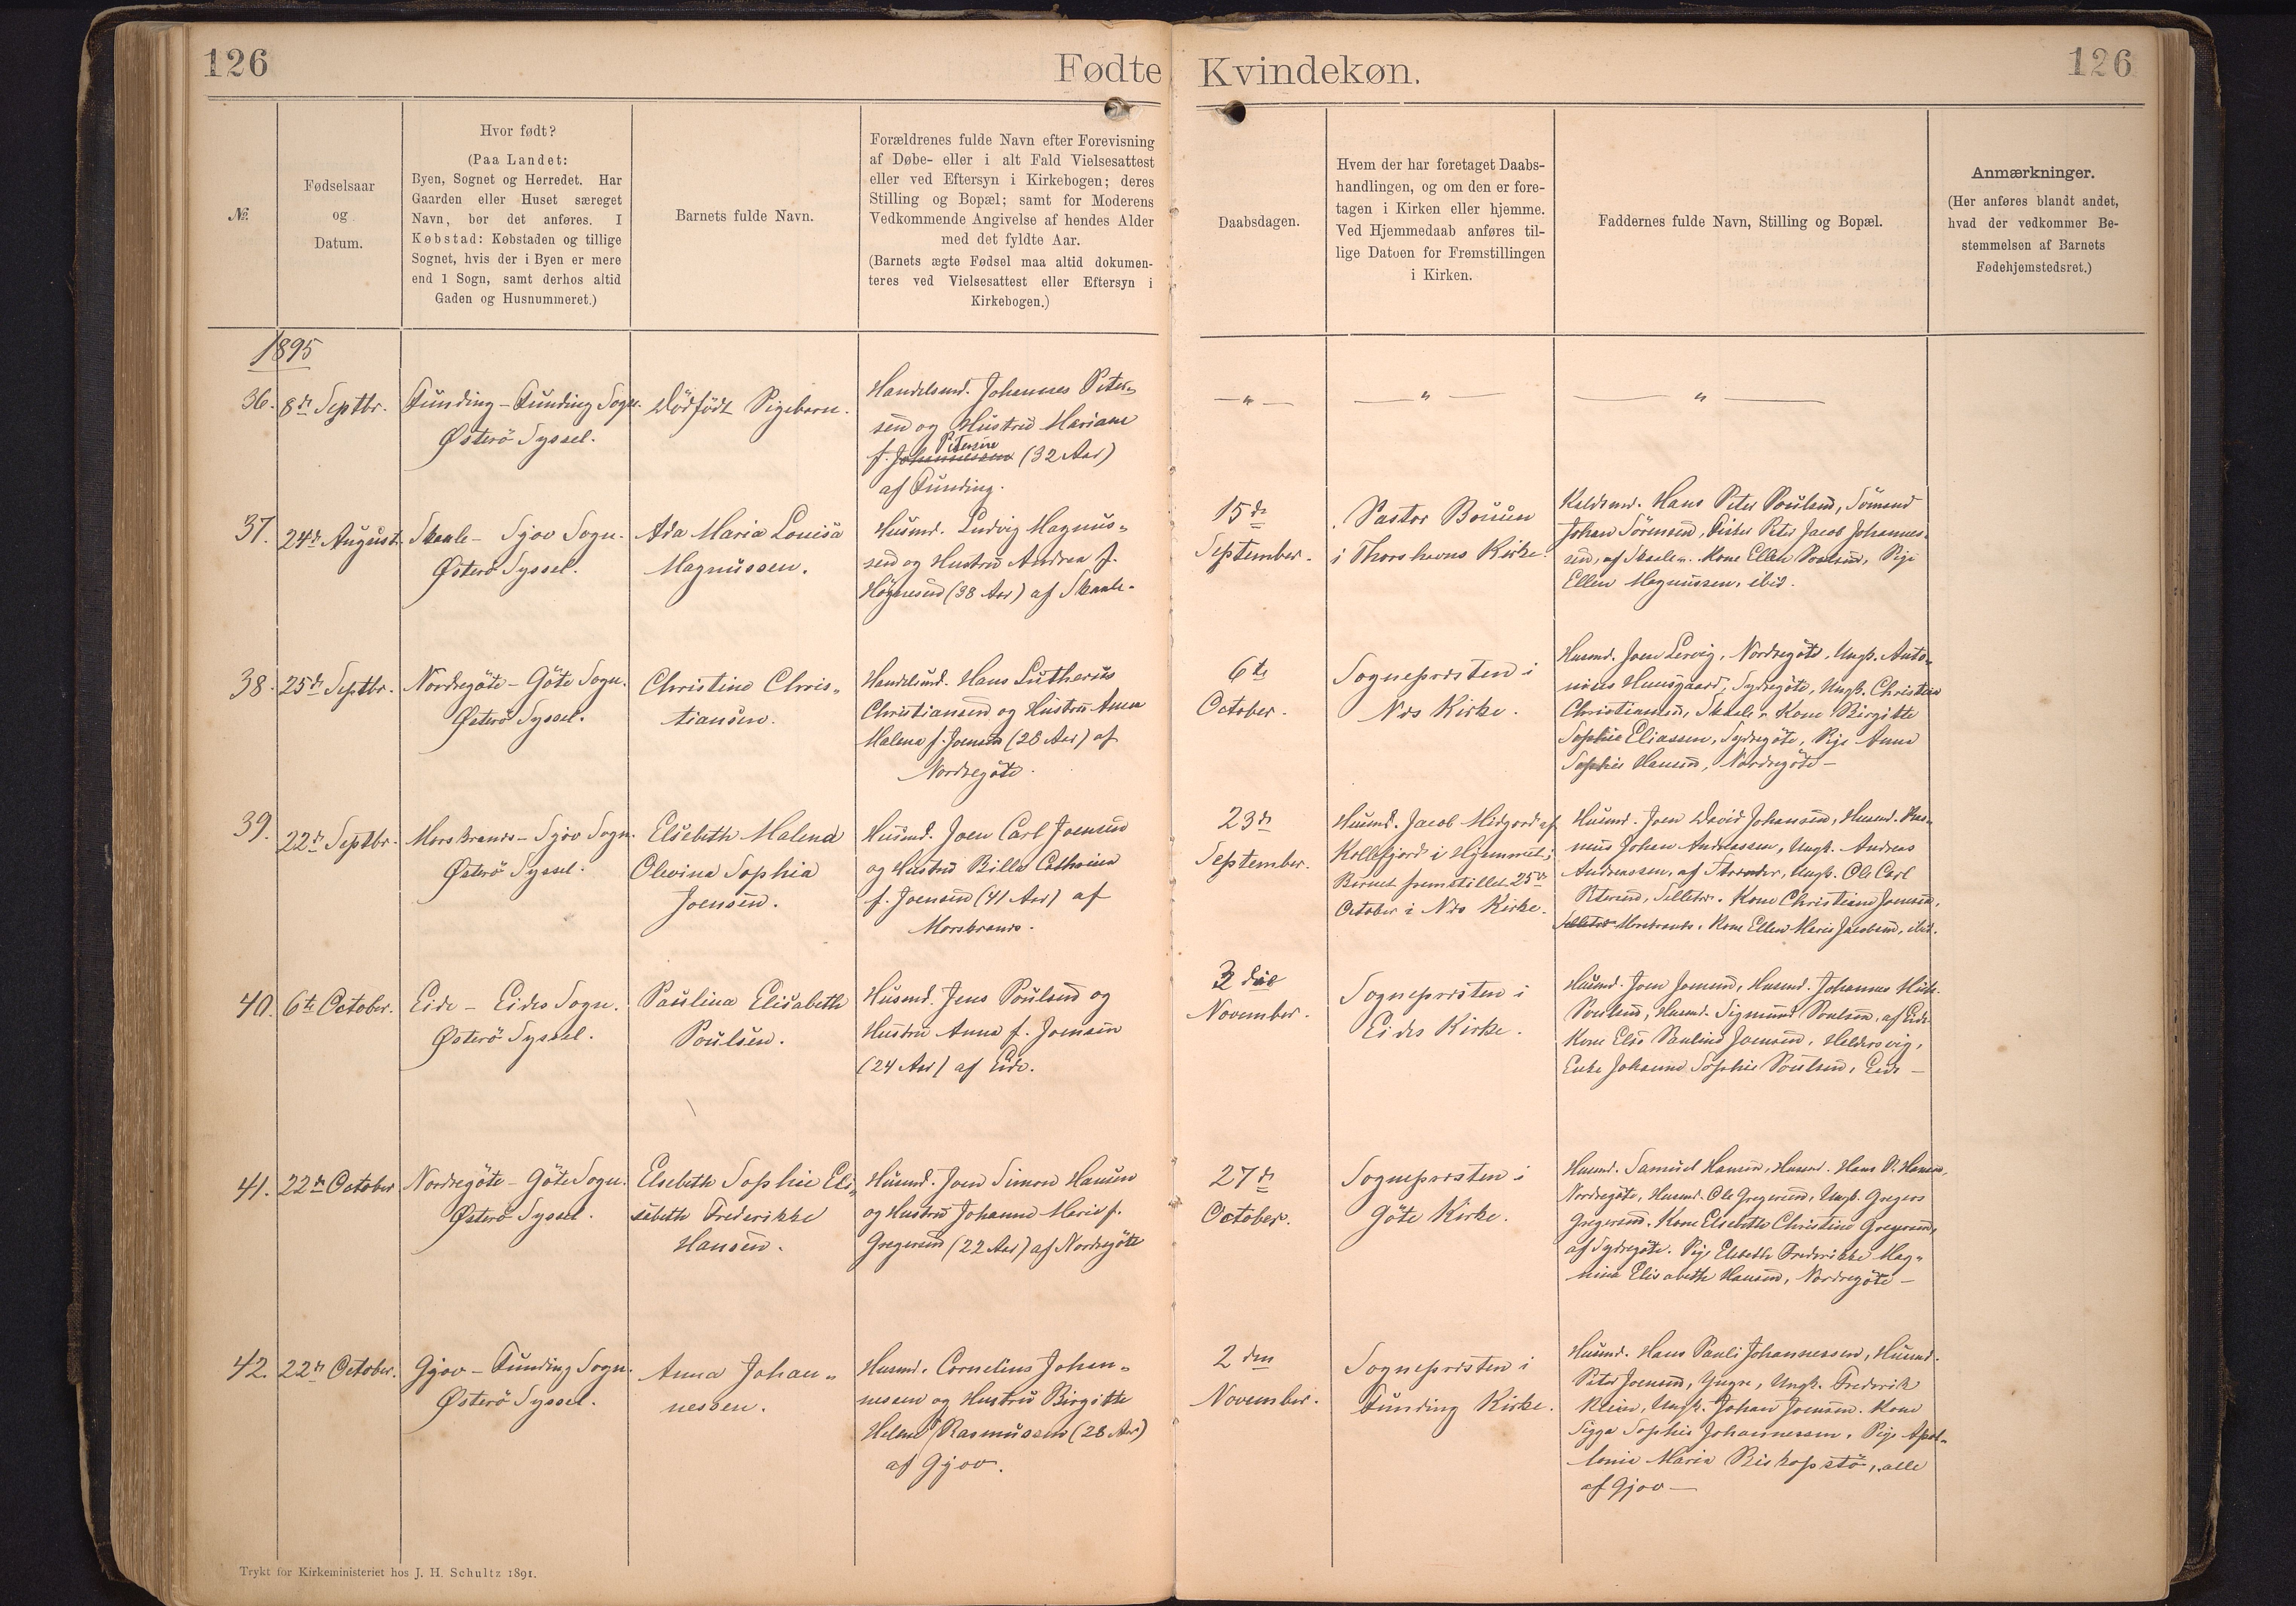 126
Fødte Kvindekøn.
126
№
Fødselsaar
og
Datum.
Hvor født?
(Paa Landet:
Byen, Sognet og Herredet. Har
Gaarden eller Huset særeget
Navn, bør det anføres. I
Købstad: Købstaden og tillige
Sognet, hvis der i Byen er mere
end 1 Sogn, samt derhos altid
Gaden og Husnummeret.)
Barnets fulde Navn.
Forældrenes fulde Navn efter Forevisning
af Døbe- eller i alt Fald Vielsesattest
eller ved Eftersyn i Kirkebogen; deres
Stilling og Bopæl; samt for Moderens
Vedkommende Angivelse af hendes Alder
med det fyldte Aar.
(Barnets ægte Fødsel maa altid dokumen-
teres ved Vielsesattest eller Eftersyn i
Kirkebogen.)
Daabsdagen.
Hvem der har foretaget Daabs-
handlingen, og om den er fore-
tagen i Kirken eller hjemme.
Ved Hjemmedaab anføres til-
lige Datoen for Fremstillingen
i Kirken.
Faddernes fulde Navn, Stilling og Bopæl.
Anmærkninger.
(Her anføres blandt andet,
hvad der vedkommer Be-
stemmelsen af Barnets
Fødehjemstedsret.)
1895
36.
8de Septbr.
Funding - Funding Sogn.
Østerö Syssel.
Dödfödt Pigebarn.
Handelsmd. Johannes Peter-
sen og Hustru Mariane
Petersen
f. Johannessen (32 Aar)
af Funding.
— " —
— " —
— " —
37.
24de August.
Skaale - Sjov Sogn.
Østerö Syssel.
Ada Maria Louisa
Magnussen.
Husmd. Ludvig Magnus-
sen og Hustru Andrea f.
Högnesen (38 Aar) af Skaale.
15de
September.
Pastor Bouen
i Thorshavns Kirke.
Hans Peter Poulsen, Sömand
Johan Sörensen, Peter Jacob Johannes-
sen, af Skaale. Kone Ellen Poulsen, Pige
Ellen Magnussen, ibid.
38.
25de Septbr.
Nordregöte - Göte Sogn.
Østerö Syssel.
Christine Chris-
tiansen.
Handelsmd. Hans Lutherus
Christiansen og Hustru Anna
Malene f. Joensen (28 Aar) af
Nordregöte.
6te
October.
Sognepræsten i
Næs Kirke.
Husmd. Joen Lervig, Nordregöte, Ungk. Anto-
nius Huusgaard, Sydregöte, Ungk. Christen
Christiansen, Skaale, Kone Birgitte
Sophie Eliassen, Sydregöte, Pige Anna
Sophie Hansen, Nordregöte -
39.
22de Septbr.
Morskranes - Sjov Sogn.
Østerö Syssel.
Elsebeth Malene
Olevina Sophia
Joensen.
Husmd. Joen Carl Joensen
og Hustru Billa Cathrina
f. Joensen (41 Aar) af
Morskranes.
23de
September.
Husmd. Jacob Midgord af
Kollefjord i Hjemmet;
Barnet fremstillet 25de
October i Næs Kirke.
Husmd. Joen David Johansen, Husmd. Ras-
mus Johan Andreassen, Ungk. Andreas
Andreassen, af Strænder, Ungk. Ole Carl
Petersen, Selletræ. Kone Christiane Joensen,
Selletræ Morskranes. Kone Ellen Marie Jacobsen, ibid.
40.
6te October.
Eide - Eides Sogn.
Østerö Syssel.
Paulina Elisabeth
Poulsen.
Husmd. Jens Poulsen og
Hustru Anna f. Joensen
(24 Aar) af Eide.
3die
November.
Sognepræsten i
Eides Kirke.
Husmd. Joen Joensen, Husmd. Johannes
Poulsen, Husmd. Sigmund Poulsen, af Eide.
Kone Else Pauline Joensen, Heldersvig,
Enke Johanne Sophie Poulsen, Eide -
41.
22de October
Nordregöte - Göte Sogn.
Østerö Syssel.
Elsebeth Sophie Eli-
sabeth Frederikke
Hansen.
Husmd. Joen Simon Hansen
og Hustru Johanne Marie f.
Gregersen (22 Aar) af Nordregöte
27de
October.
Sognepræsten i
Göte Kirke.
Husmd. Samuel Hansen, Husmd. Hans P. Hansen,
Nordregöte, Husmd. Ole Gregersen, Ungk. Gregers
Gregersen. Kone Elsebeth Christine Gregersen,
af Sydregöte. Pige Elsebeth Frederikke Mag-
nine Elisabeth Hansen, Nordregöte -
42.
22de October.
Gjov - Funding Sogn.
Østerö Syssel.
Anna Johan-
nessen.
Husmd. Cornelius Johan-
nessen og Hustru Birgitte
Helene f. Rasmussen (28 Aar)
af Gjov.
2den
November.
Sognepræsten i
Funding Kirke.
Husmd. Hans Pauli Johannessen, Husmd.
Peter Joensen, Yngre, Ungk. Frederik
Klein, Ungk. Johan Joensen. Kone
Sigga Sophie Johannessen, Pige Apol-
lonia Maria Biskopstö, alle
af Gjov -
Trykt for Kirkeministeriet hos J. H. Schultz 1891.